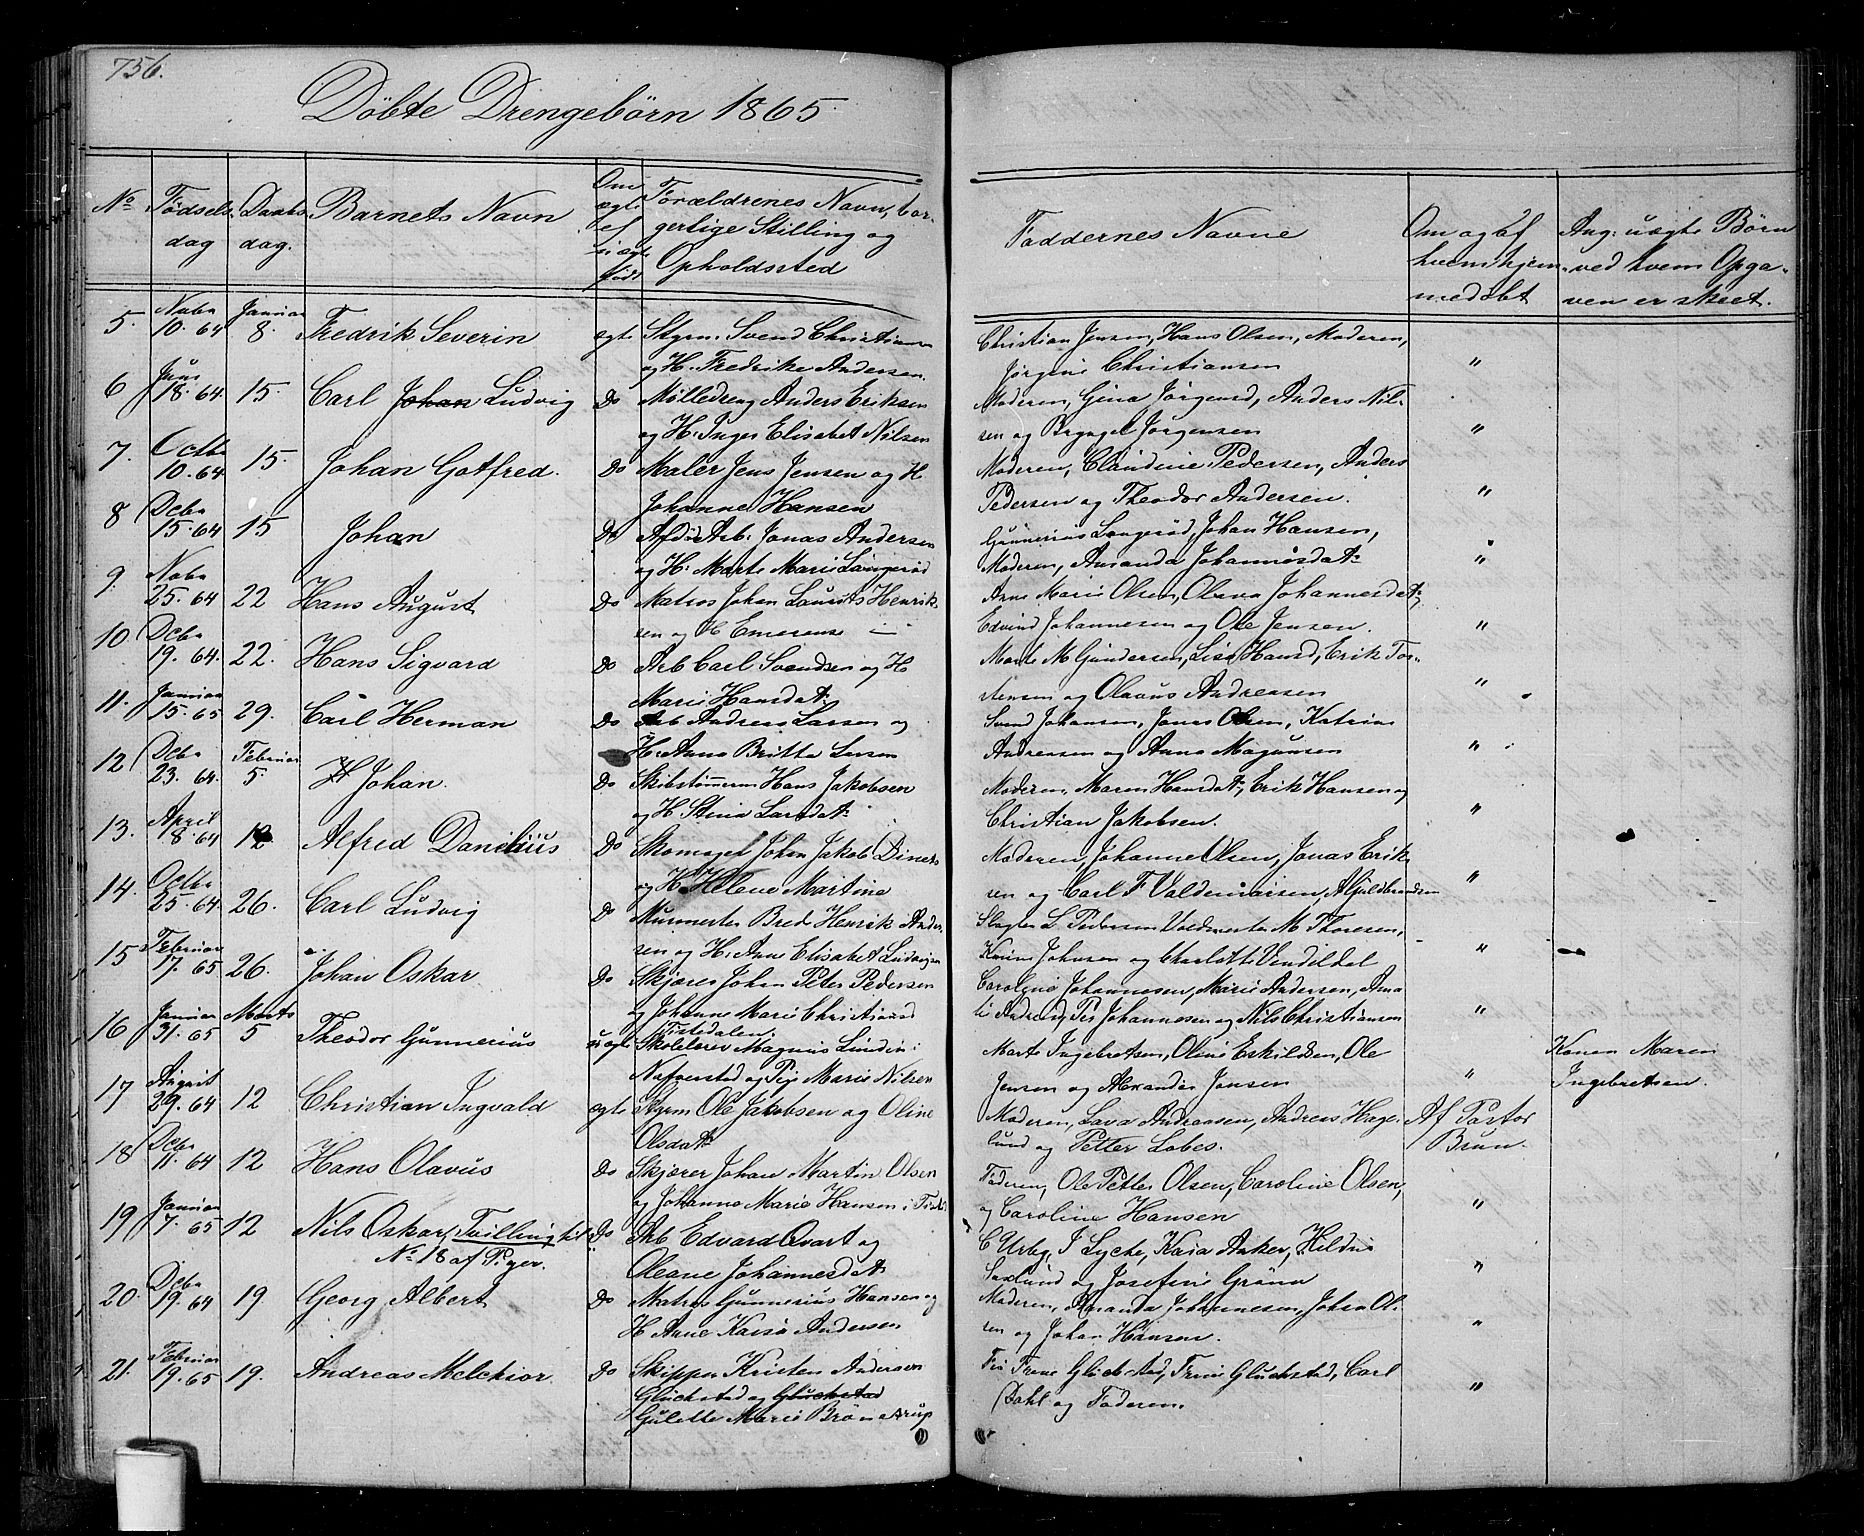 756.
Döbte Drengebörn 1865
No Födsels dag Daabs dag. Barnets Navn Om ægte el uægte født Forældrenes Navn, borgerlige Stilling og Opholdssted Faddernes Navne Om og af hvem hjemmedøbt Ang: uægte Børn ved hvem Opgaven er skeet.
5. Nvbr 10. 64 Januar 8. Fredrik Severin ægte Styrm. Svend Christiansen Christian Jensen, Hans Olsen, Moderen,
og H. Fredrike Andersen. Jørgine Christiansen "
6 Juni 18. 64. 15. Carl Johan Ludvig Do Mølledreng Anders Eriksen Moderen, Gina Jørgensd, Anders Nil-
og H. Inger Elisabet Nilsen sen og Jørgensen "
7. Octbr 10. 64 15. Johan Gotfred. Do Maler Jens Jensen og H. Moderen, Claudine Pedersen, Anders
Johanne Hansen Pedersen og Theodor Andersen. "
8 Dcbr 15. 64 15 Johan Do Arb: Jonas Andersen Gunnerius Langerød, Johan Hansen,
og H: Marte Marie Langerød Moderen, Amanda Johannesdat "
9. Nvbr 25. 64 22 Hans August Do Matros Johan Laurits Henrik- Anne Marie Olsen, Olava Johannesdat,
sen og H Emerense Edvind Johannesen og Ole Jensen. "
10 Dcbr 19. 64. 22. Hans Sigvard Do Arb Carl Svendsen og H Marte M Gundersen, Lise Hansd, Erik Tor-
Marie Hansdat stensen og Olavus Andreasen "
11. Januar 15. 65 29. Carl Herman Do Arb Andreas Larsen og Svend Johansen, Jonas Olsen, Katrine
H. Anna Britta Larsen Andreasen og Anna Magnusen "
12 Dcbr 23. 64. Februar 5. Johan. Do Skibstømmerm Hans Jakobsen Moderen, Maren Hansdat, Erik Hansen og
og H Stina Larsdat Christian Jakobsen. "
13. April 18. 64 12 Alfred Danielius Do Skomager Johan Jakob Moderen, Johanne Olsen, Jonas Erik-
og H. Helene Martine sen og Carl F Valdemarsen, A Guldbrandsen "
14. Octbr 25. 64. 26. Carl Ludvig Do Murmester Bred Henrik Ander- Slagter L Pedersen M Thoresen,
sen og H. Ane Elisabet Ludvigsen Karine Johnsen og Charlotte "
15 Februar 17. 65 26. Johan Oskar Do Skjærer Johan Peter Pedersen Caroline Johannesen, Marie Andersen, Ama
og Johanne Marie Christiansd li Johannesen og Nils Christiansen "
Tistedalen.
16 Januar 31. 65 Marts 5 Theodor Gunnerius uægte Skolelærer Magnus Linden i Marte Ingebretsen, Oline Eskildsen, Ole Konen Maren
og Pige Marie Nilsen Jensen og Alexander Jensen " Ingebretsen.
17 August 29. 64 12 Christian Ingvald ægte Styrm Ole Jakobsen og Oline Moderen, Lava Andreasen, Andreas Hage- Af Pastor
Olsdat lund og Petter Lobes. Brun.
18 Dcbr 11. 64 12 Hans Olavus Do Skjærer Johan Martin Olsen Faderen, Ole Petter Olsen, Caroline Olsen,
og Johanne Marie Hansen i og Caroline Hansen "
19 Januar 7. 65 12 Nils Oskar, Tvilling til Do Arb Edvard Qvart og C Urby, I Lyche, Kaia Anker, Hilda
No 18 af Piger. Oleane Johannesdat og Josefine Gröna "
20. Dcbr 19. 64 19 Georg Albert Do Matros Gunnerius Hansen og Moderen, Amanda Johannesen, Johan Ol-
H Anne Kaisa Andersen sen og Johan Hansen. "
21. Februar 19. 65 19. Andreas Melchior Do Skipper Kristen Andersen Glückstad, Trine Glückstad, Carl
Glückstad og Glückstad Dahl og Faderen. "
Gulette Marie